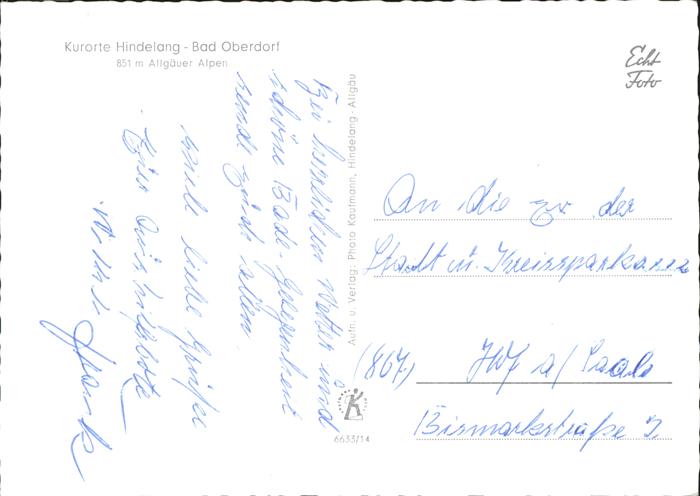 Kurorte Hindelang - Bad Oberdorf
851 m Allgäuer Alpen
Echt
Foto
Bei herrlichem Wetter und
schöne Bade-Gelegenheit
sende Euch allen
viele liebe Grüße
Euer
Aufn. u. Verlag: Photo Kaufmann, Hindelang - Allgäu
An die zu der
Stadt u. Kreissparkasse
(867) Hof a/Saale
Bismarkstraße
6633/14